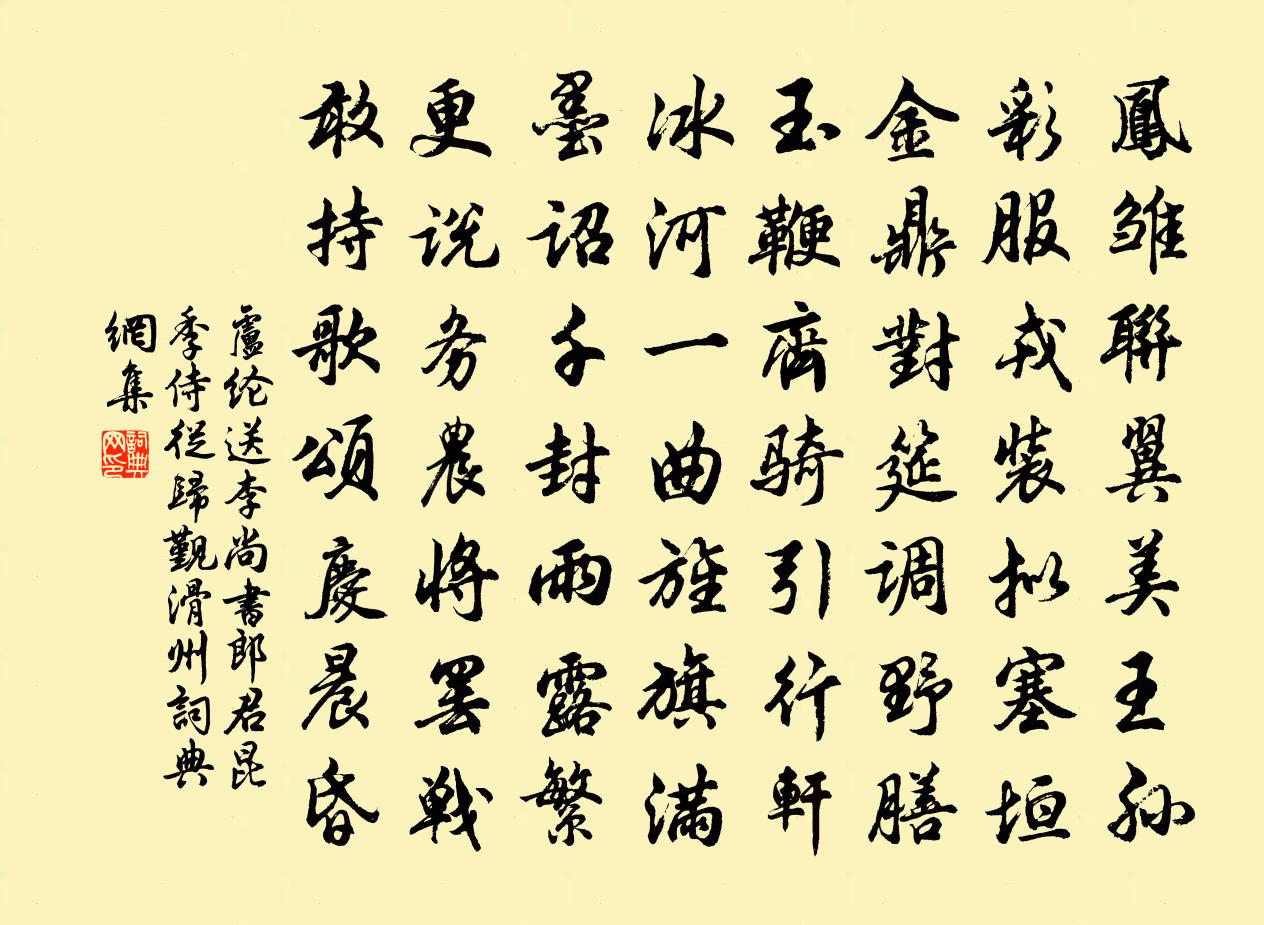 鳳雏聯翼美王孙
彩服戎裝拟塞垣
金鼎對筵调野膳
玉鞭齊骑引行軒
冰河一曲旌旗滿
墨诏千封雨露繁
更说务農將罢戰
敢持歌頌慶晨昏
盧纶送李尚書郎君昆
季侍從歸觐滑州詞典
網集
詞典
网印